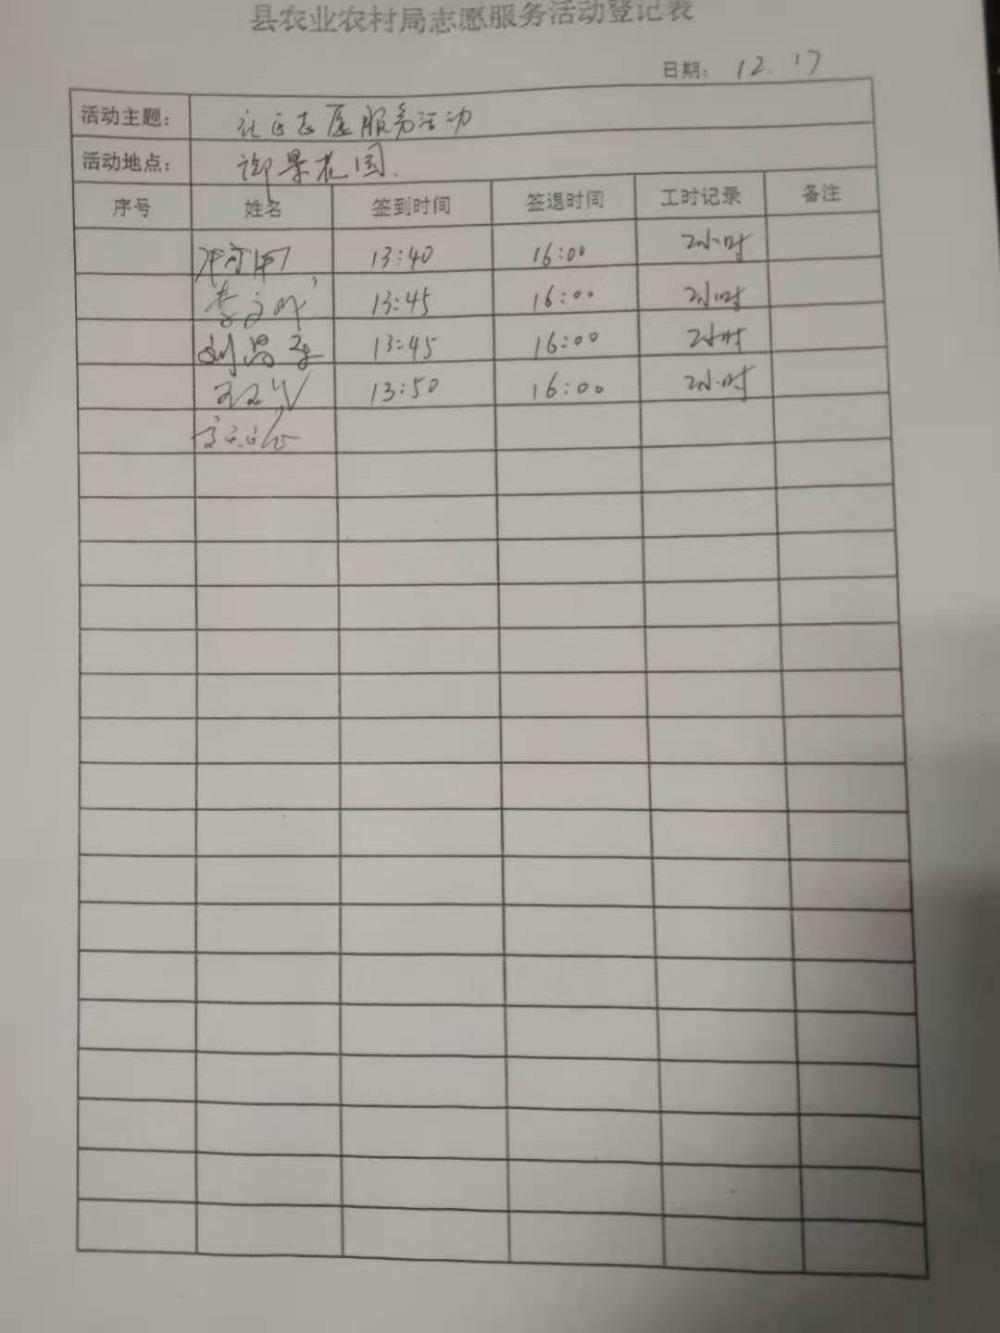 县农业农村局志愿服务活动登记表
日期: 12.17
活动主题: 社区志愿服务活动
活动地点: 御景花园.
序号 姓名 签到时间 签退时间 工时记录 备注
13:40 16:00 2小时
13:45 16:00 2小时
13:45 16:00 2小时
13:50 16:00 2小时